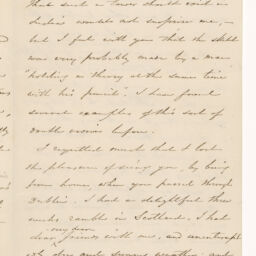 that such a tower should exist in
India would not surprise me, —
but I feel with you that the sketch
was very probably made by a man
"holding a theory at the same time
with his pencil". I have found
several examples of this sort of
double vision before.
I regretted much that I lost
the pleasure of seeing you, by being
from home, when you passed through
Dublin. I had a delightful three
weeks ramble in Scotland. I had
my dear
dear friends with me, and uninterrupt